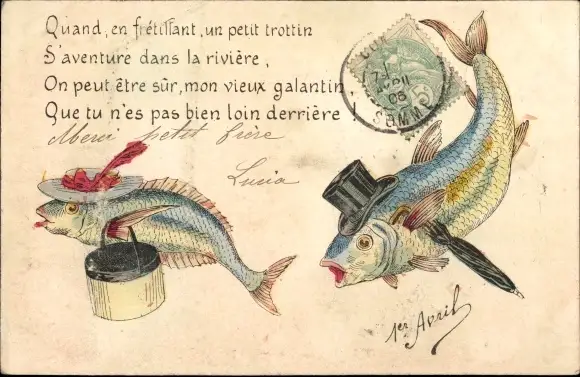 Quand, en frétillant, un petit trottin
S'aventure dans la rivière,
On peut être sûr, mon vieux galantin,
Que tu n'es pas bien loin derrière!
Merci petit frère
Lucia
AVRIL
05
SOMME
1er Avril